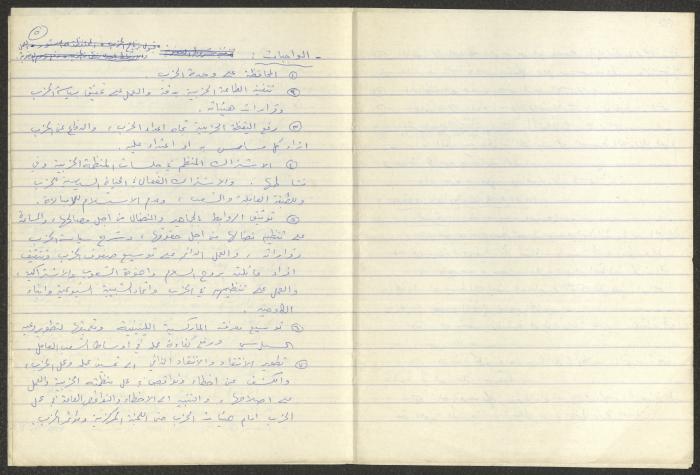 ٥
- الواجبات :
① المحافظة على وحدة الحزب .
② تنفيذ الطاعة الحزبية بدقة والعمل على تحقيق سياسة الحزب
وقرارات هيئاته .
③ رفع اليقظة الحزبية تجاه اعداء الحزب ، والدفاع عن الحزب
ازاء كل مساس به او اعتداء عليه .
④ الاشتراك المنظم في جلسات المنظمة الحزبية وفي
نشاطها . والاشتراك الفعال في الحياة السياسية للحزب
وللطبقة العاملة والشعب ، وعدم الاستسلام للامبالاة .
⑤ توثيق الروابط بالجماهير والنضال من اجل مصالحها ، والمساعدة
على تنظيم نضالها من اجل حقوقها ، وشرح سياسة الحزب
وقراراته ، والعمل الدائم على توسيع صفوف الحزب وتثقيف
افراد عائلته بروح السلم واخوة الشعوب والاشتراكية ،
والعمل على تنظيمهم في الحزب واتحاد الشبيبة الشيوعية وابناء
الكادحين .
⑥ توسيع معرفته الماركسية اللينينية وتعميقها لتطوير وعيه
السياسي ورفع كفاءة عمله في اوساط الشعب العامل
⑦ تطوير الانتقاد والانتقاد الذاتي الى تحسين عمله وعمل الحزب ،
والكشف عن اخطاء ونواقص عمل منظمته الحزبية والعمل
على اصلاحها ، والتنبيه الى الاخطاء والنواقص العامة في عمل
الحزب امام هيئات الحزب حتى اللجنة المركزية ومؤتمر الحزب .